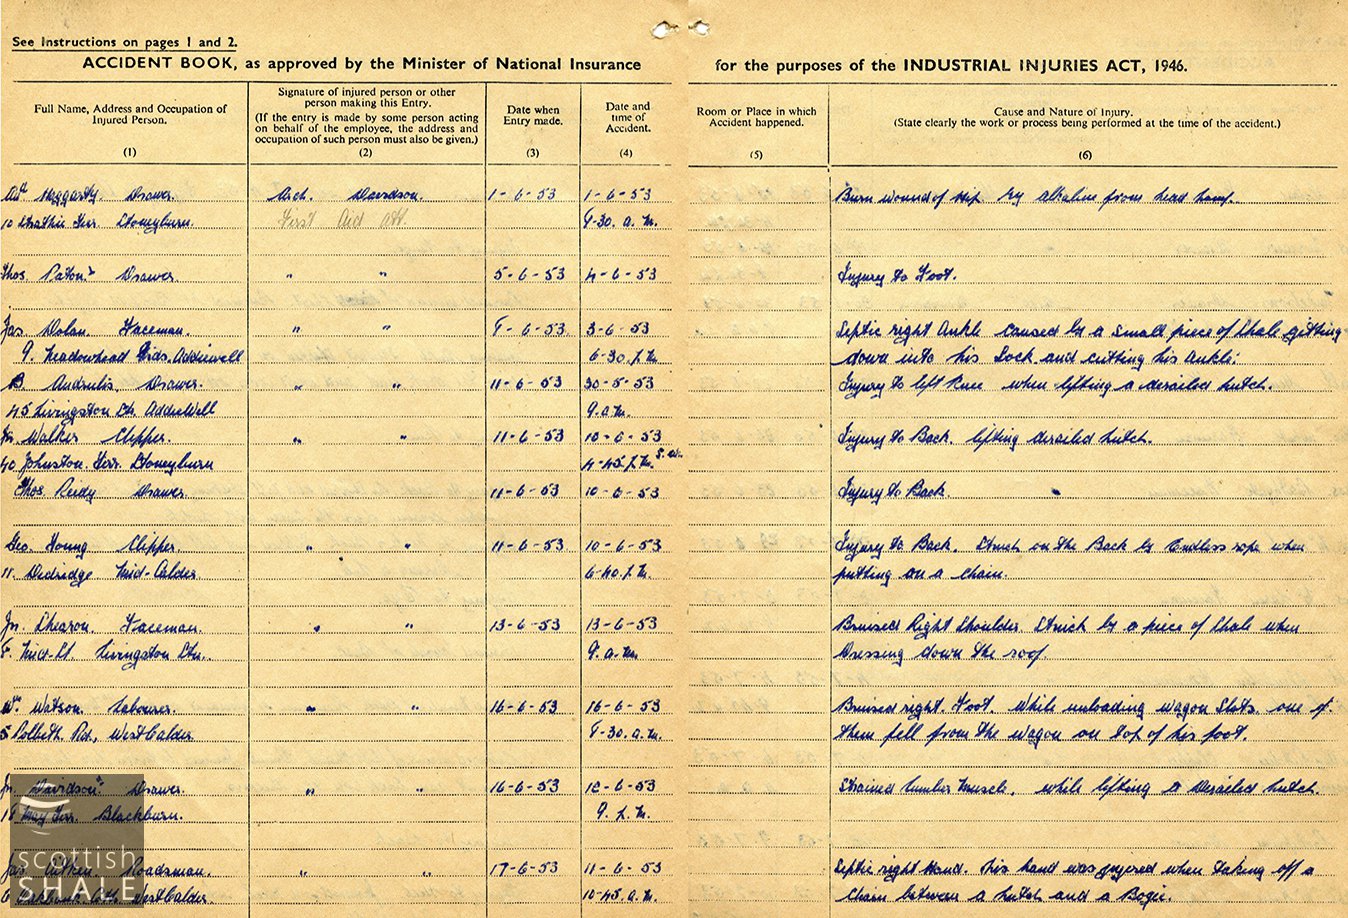 See Instructions on pages 1 and 2.
ACCIDENT BOOK, as approved by the Minister of National Insurance for the purposes of the INDUSTRIAL INJURIES ACT, 1946.
Full Name, Address and Occupation of Injured Person. (1)
Signature of injured person or other person making this Entry. (If the entry is made by some person acting on behalf of the employee, the address and occupation of such person must also be given.) (2)
Date when Entry made. (3)
Date and time of Accident. (4)
Room or Place in which Accident happened. (5)
Cause and Nature of Injury. (State clearly the work or process being performed at the time of the accident.) (6)
Haggarty Drawer. Arch. Davidson. 1-6-53 1-6-53 Burn wound of Hip by alkaline from head lamp.
10 Strathie Terr. Stoneyburn. First Aid Att. 9-30. a.m.
Thos. Paton Drawer " " 5-6-53 4-6-53 Injury to Foot.
Jas. Dolan. Faceman. " " 9-6-53. 3-6-53 Septic right Ankle caused by a small piece of Shale getting
9. Meadowhead Addiewell 6-30. p.m. down into his Sock and cutting his Ankle.
B. Andrulis, Drawer. " " 11-6-53 30-5-53 Injury to left Knee when lifting a derailed hutch.
45 Livingston St. Addiewell 9. a.m.
Jn. Walker Clipper. " " 11-6-53 10-6-53 Injury to Back. lifting derailed hutch.
40 Johnston. Terr. Stoneyburn 4-45. p.m.
Thos. Reidy Drawer. 11-6-53 10-6-53 Injury to Back. "
Geo. Young Clipper. " " 11-6-53 10-6-53 Injury to Back. Struck on the Back by Endless rope when
11. Dedridge Mid-Calder. 6-40. p.m. putting on a Chain.
Jn. Shearon. Faceman. " " 13-6-53 13-6-53 Bruised Right Shoulder. Struck by a piece of Shale when
Mid-St. Livingston Stn.. 9. a.m. Dressing down the roof
Watson. Labourer. " " 16-6-53 16-6-53 Bruised right. Foot. While unloading wagon Slots. one of.
5 Polbeth Rd, West Calder 9-30. a.m. them fell from the wagon on top of his foot.
Jn. Davidson Drawer. " " 16-6-53 12-6-53 Strained lumber Muscle. while lifting a Derailed hutch.
May Terr. Blackburn. 9. p.m.
Jas. Aitken. Roadsman. " " 17-6-53 11-6-53 Septic right Hand. His hand was injured when taking off a
West Calder. 10-45. a.m. Chain between a hutch and a Bogie.
scottish
SHALE